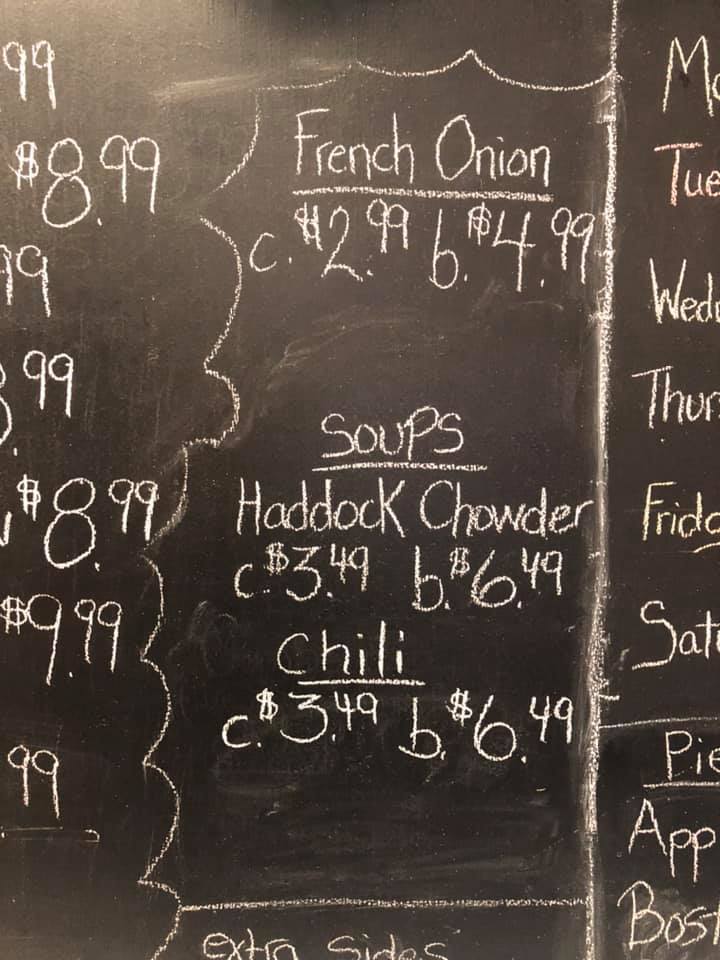 99
$8.99
99
99
$8.99
$9.99
99
French Onion
c. $2.99 b. $4.99
SOUPS
Haddock Chowder
c. $3.49 b. $6.49
Chili
c. $3.49 b. $6.49
extra Sides
Tue
Wed
Thur
Sat
Pie
App
Bost